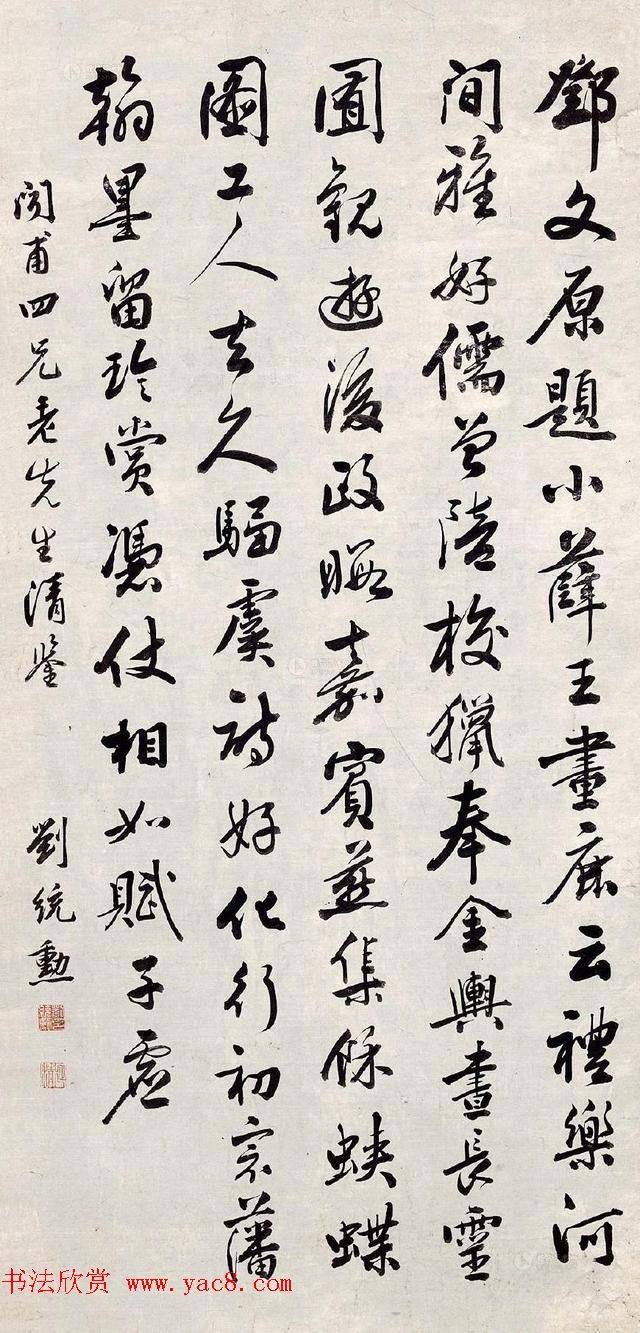 鄧文原題小薛王畫鹿云禮樂河
間雅好儒曾陪校獵奉金輿晝長靈
囿觀遊後政暇嘉賓燕集餘蛺蝶
圖工人去久騶虞詩好化行初宗藩
翰墨留珍賞憑仗相如賦子虛
閲甫四兄老先生清鑒
劉統勳
书法欣赏 www.yac8.com